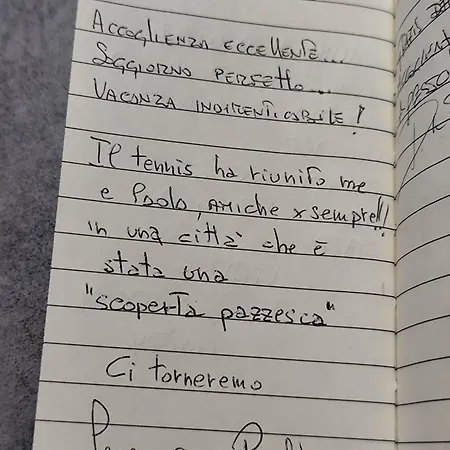 ACCOGLIENZA ECCELLENTE...
SOGGIORNO PERFETTO...
VACANZA INDIMENTICABILE!
Il tennis ha riunito me
e Paola, AMICHE x sempre!!
in una città che è
stata una
"scoperta pazzesca"
Ci torneremo